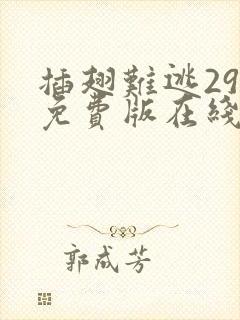 插翅難逃29
免費版在綫
郭成芳